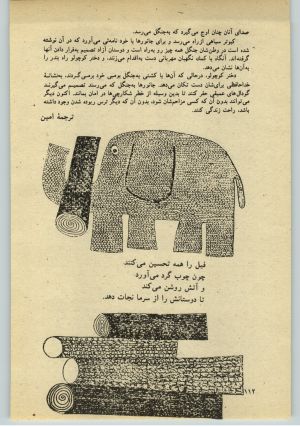 صدای آنان چنان اوج می‌گیرد که به‌جنگل می‌رسد.
کبوتر سیاهی ازراه می‌رسد و برای جانورها با خود نامه‌ئی می‌آورد که در آن نوشته
شده است در وطن‌شان جنگل همه چیز رو به‌راه است و دوستان آزاد تصمیم به‌فرار دادن آنها
گرفته‌اند. آنگاه با کمک نگهبان مهربانی دست به‌اقدام می‌زنند، و دختر کوچولو راه بندر را
به‌آن‌ها نشان می‌دهد.
دختر کوچولو، درحالی که آن‌ها با کشتی به‌جنگل برمی خود برمی‌گردند، به‌نشانهٔ
خداحافظی برای‌شان دست تکان می‌دهد. جانورها به‌جنگل که می‌رسند تصمیم می‌گیرند
گودال‌های عمیقی حفر کنند تا بدین وسیله از خطر شکارچی‌ها در امان بمانند. اکنون دیگر
می‌توانند بدون آن که کسی مزاحم‌شان شود، بدون آن که دیگر ترس ربوده شدن وجود داشته
باشد، راحت زندگی کنند.
ترجمهٔ امین
فیل را همه تحسین می‌کنند
چون چوب گرد می‌آورد
و آتش روشن می‌کند
تا دوستانش را از سرما نجات دهد.
۱۱۲